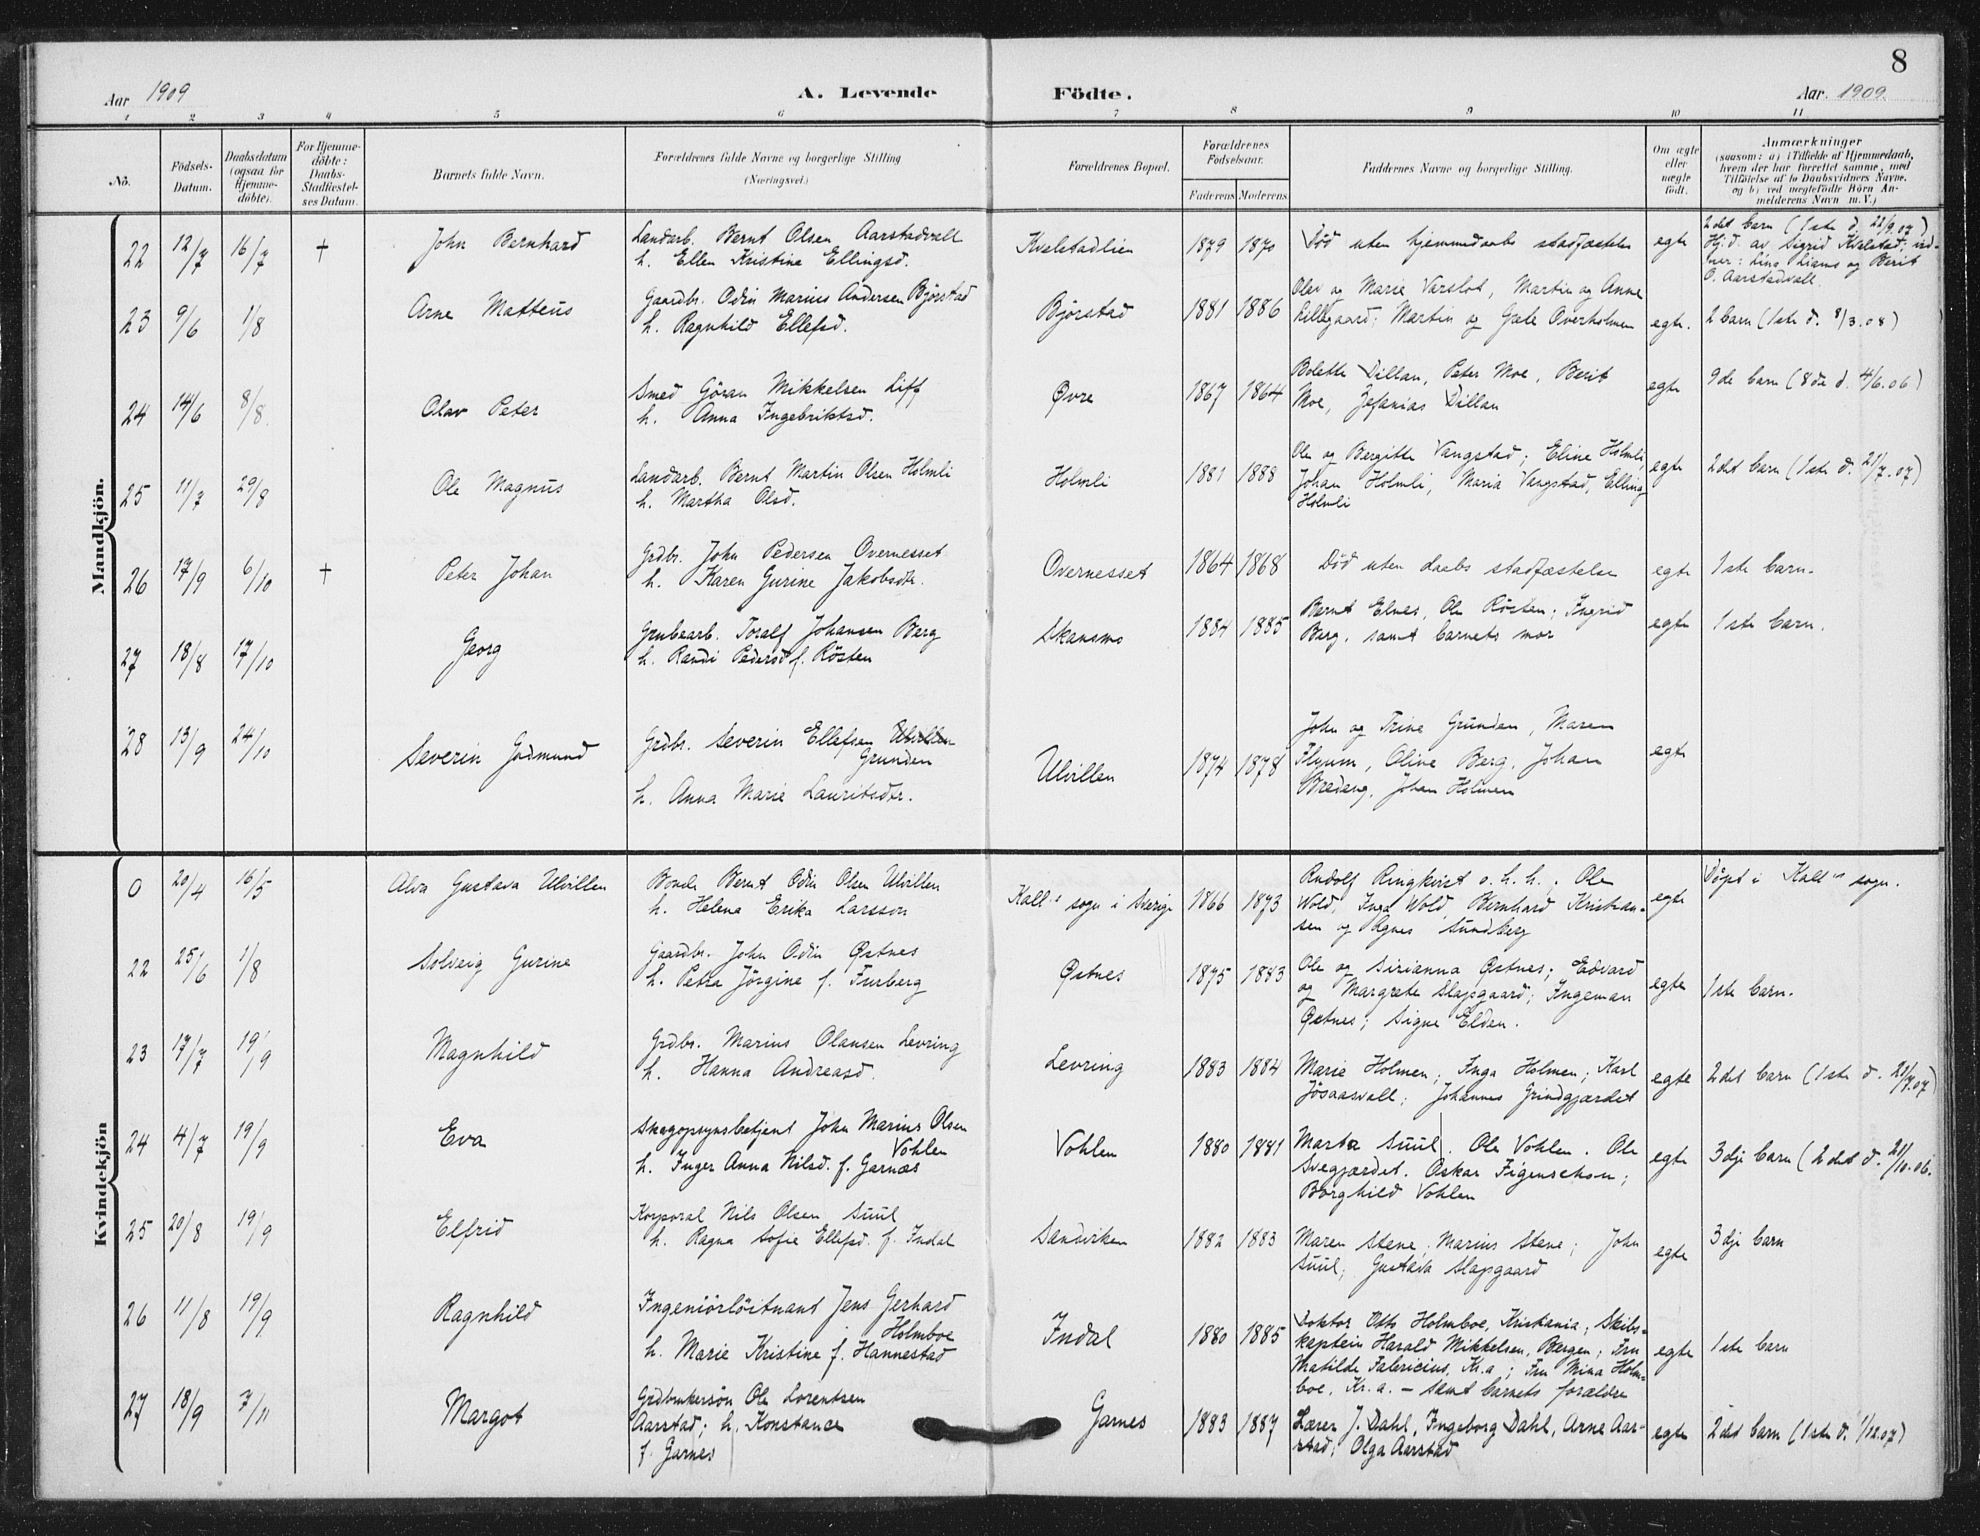 8
Aar 1909
A. Levende
Födte.
Aar 1909
1 2 3 4 5 6 7 8 9 10 11
No.
Födsels-
Datum.
Daabsdatum
(ogsaa for
Hjemme-
döbte).
For Hjemme-
döbte:
Daabs-
Stadfæstel-
ses Datum.
Barnets fulde Navn.
Forældrenes fulde Navne og borgerlige Stilling
(Næringsvei.)
Forældrenes Bopæl.
Forældrenes
Födselsaar.
Faderens Moderens
Faddernes Navne og borgerlige Stilling.
Om ægte
eller
uægte
födt.
Anmærkninger
(saasom: a) i Tilfælde af Hjemmedaab,
hvem der har forrettet samme, med
Tilföielse af to Daabsvidners Navne,
og b) ved uægtefödte Börn An-
melderens Navn m. V.)
Mandkjön.
22 12/7 16/7 † John Bernhard
Landarb. Bernt Olsen Aarstadvall
h. Ellen Kristine Ellingsd.
Kvelstadlien 1879 1870 Död uten hjemmedaabs stadfæstelse egte
2det barn (1ste d. 22/9.07)
Hj.d. av Sigrid Kvelstad; vid-
ner: Lina Liams og Berit
O. Aarstadvall.
23 9/6 1/8 Arne Matteus
Gaardbr. Odin Marius Andersen Bjørstad
h. Ragnhild Ellefsd.
Bjørstad 1881 1886
Olav og Marie Varslot, Martin og Anne
Lillegaard; Martin og Gale Overholmen
egte. 2 barn (1ste d. 8/3.08)
24 14/6 8/8. Olav Peter
Smed Göran Mikkelsen Liff
h. Anna Ingebriktsd.
Øvre 1867 1864
Bolette Dillan, Peter Moe, Berit
Moe, Zefanias Dillan
egte 9de barn (8de d. 4/6.06)
25 11/7 29/8 Ole Magnus
Landarb. Bernt Martin Olsen Holmli
h. Martha Olsd.
Holmli 1881 1888
Ole og Bergitte Vangstad; Eline Holmli,
Johan Holmli, Maria Vangstad, Elling
Holmli
egte 2det barn (1ste d. 21/7.07)
26 17/9 6/10 † Peter Johan
Grdbr. John Pedersen Overnesset
h. Karen Gurine Jakobsdtr.
Overnesset 1864 1868 Död uten daabs stadfæstelse egte 1ste barn.
27 18/8 17/10 Georg
Grubearb. Toralf Johansen Berg
h. Randi Pedersd f. Rösten
Skansmo 1884 1885
Bernt Elnes, Ole Rösten; Ingrid
Berg, samt barnets mor
egte 1ste barn.
28 13/9 24/10 Severin Gudmund
Grdbr. Severin Ellefsen Ulvillen
Grunden
h. Anna Marie Lauritsdtr.
Ulvillen 1874 1878
John og Trine Grunden, Maren
Flyum, Oline Berg, Johan
Bredeng, Johan Holmen
egte
Kvindekjön
0 20/4 16/5 Alva Gustava Ulvillen
Bonde Bernt Odin Olsen Ulvillen
h. Helena Erika Larsson
Kall's sogn i Sverige 1866 1873
Rudolf Ringkvist o.h.h.; Ole
Wold, Inga Wold, Bernhard Kristian-
sen og Agnes Sundberg
egte Döpt i Kall's sogn.
22 25/6 1/8 Solveig Gurine
Gaardbr. John Odin Østnes
h. Petra Jörgine f. Furberg
Østnes 1875 1883
Ole og Sirianna Østnes; Edvard
og Margrete Slapgaard; Ingeman
Østnes; Signe Elden.
egte 1ste barn.
23 17/7 19/9 Magnhild
Grdbr. Marius Olausen Levring
h. Hanna Andreasd.
Levring 1883 1884
Marie Holmen; Inga Holmen; Karl
Jösaasvall; Johannes Grindgjærdet
egte 2det barn (1ste d. 29/7.07)
24 4/7 19/9 Eva
Skogopsynsbetjent John Marius Olsen
Vohlen
h. Inger Anna Nilsd. f. Garnæs
Vohlen 1880 1881
Marta Suul. Ole Vohlen. Ole
Svegjærdet. Oskar Figenschou;
Borghild Vohlen
egte 3dje barn (2det d. 21/10.06.
25 20/8 19/9 Elfrid
Korporal Nils Olsen Suul
h. Ragna Sofie Ellefsd. f. Indal
Sandviken 1882 1883
Maren Stene, Marius Stene; John
Suul; Gustava Slapgaard
egte 3dje barn
26 11/8 19/9 Ragnhild
Ingeniörlöitnant Jens Gerhard
Holmboe
h. Marie Kristine f. Hannestad
Indal 1880 1885
Doktor Otto Holmboe, Kristiania; Skibs-
kaptein Harald Mikkelsen, Bergen; Fru
Matilde Fabricius, Kr.a; Fru Mina Holm-
boe, Kr.a. – samt barnets forældre
egte 1ste barn
27 18/9 7/11 Margot
Grdbrukersön Ole Lorentsen
Aarstad; h. Konstance
f. Garnes
Garnes 1883 1887
Lærer J. Dahl, Ingeborg Dahl, Arne Aar-
stad; Olga Aarstad
egte 2det barn (1ste d. 1/12.07)